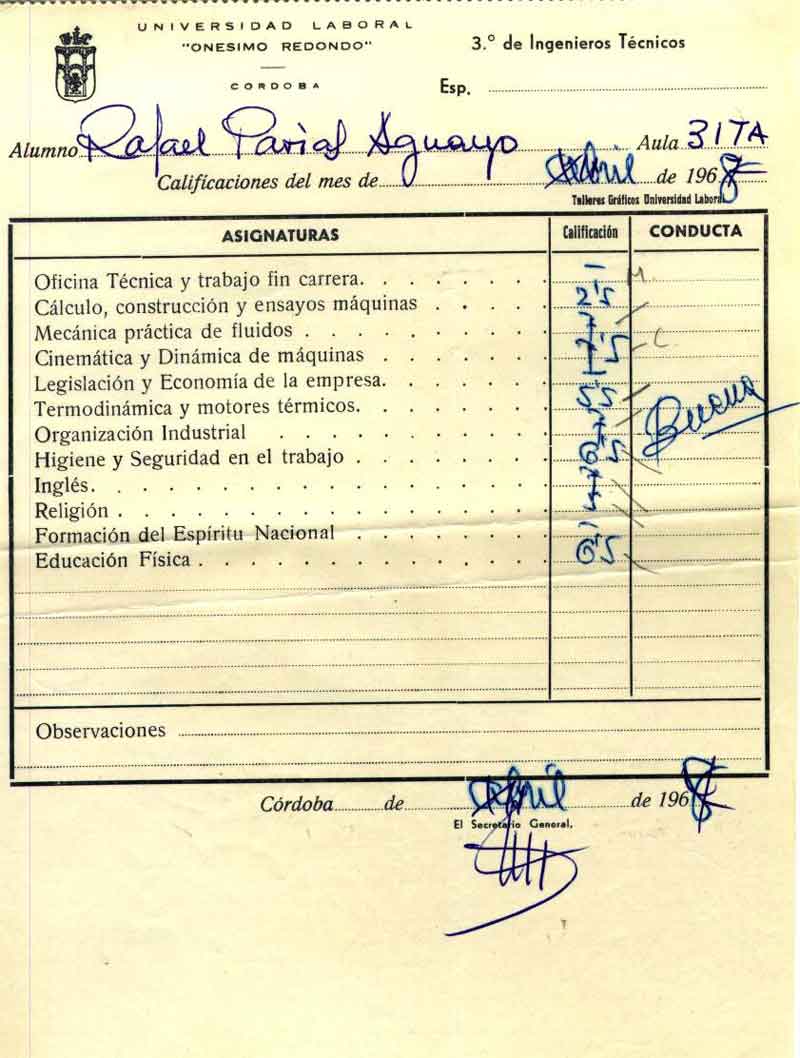 UNIVERSIDAD LABORAL
"ONESIMO REDONDO"
CORDOBA
3.º de Ingenieros Técnicos
Esp.
Alumno Rafael Aguayo Aula 3ITA
Calificaciones del mes de Abril de 196
Talleres Gráficos Universidad Laboral
ASIGNATURAS Calificación CONDUCTA
Oficina Técnica y trabajo fin carrera. -
Cálculo, construcción y ensayos máquinas 2'5
Mecánica práctica de fluidos 7
Cinemática y Dinámica de máquinas 7'5
Legislación y Economía de la empresa. -
Termodinámica y motores térmicos. 5'5
Organización Industrial 7
Higiene y Seguridad en el trabajo 6'5
Inglés. 7
Religión
Formación del Espíritu Nacional
Educación Física 6'5
Buena
Observaciones
Córdoba de Abril de 196
El Secretario General,